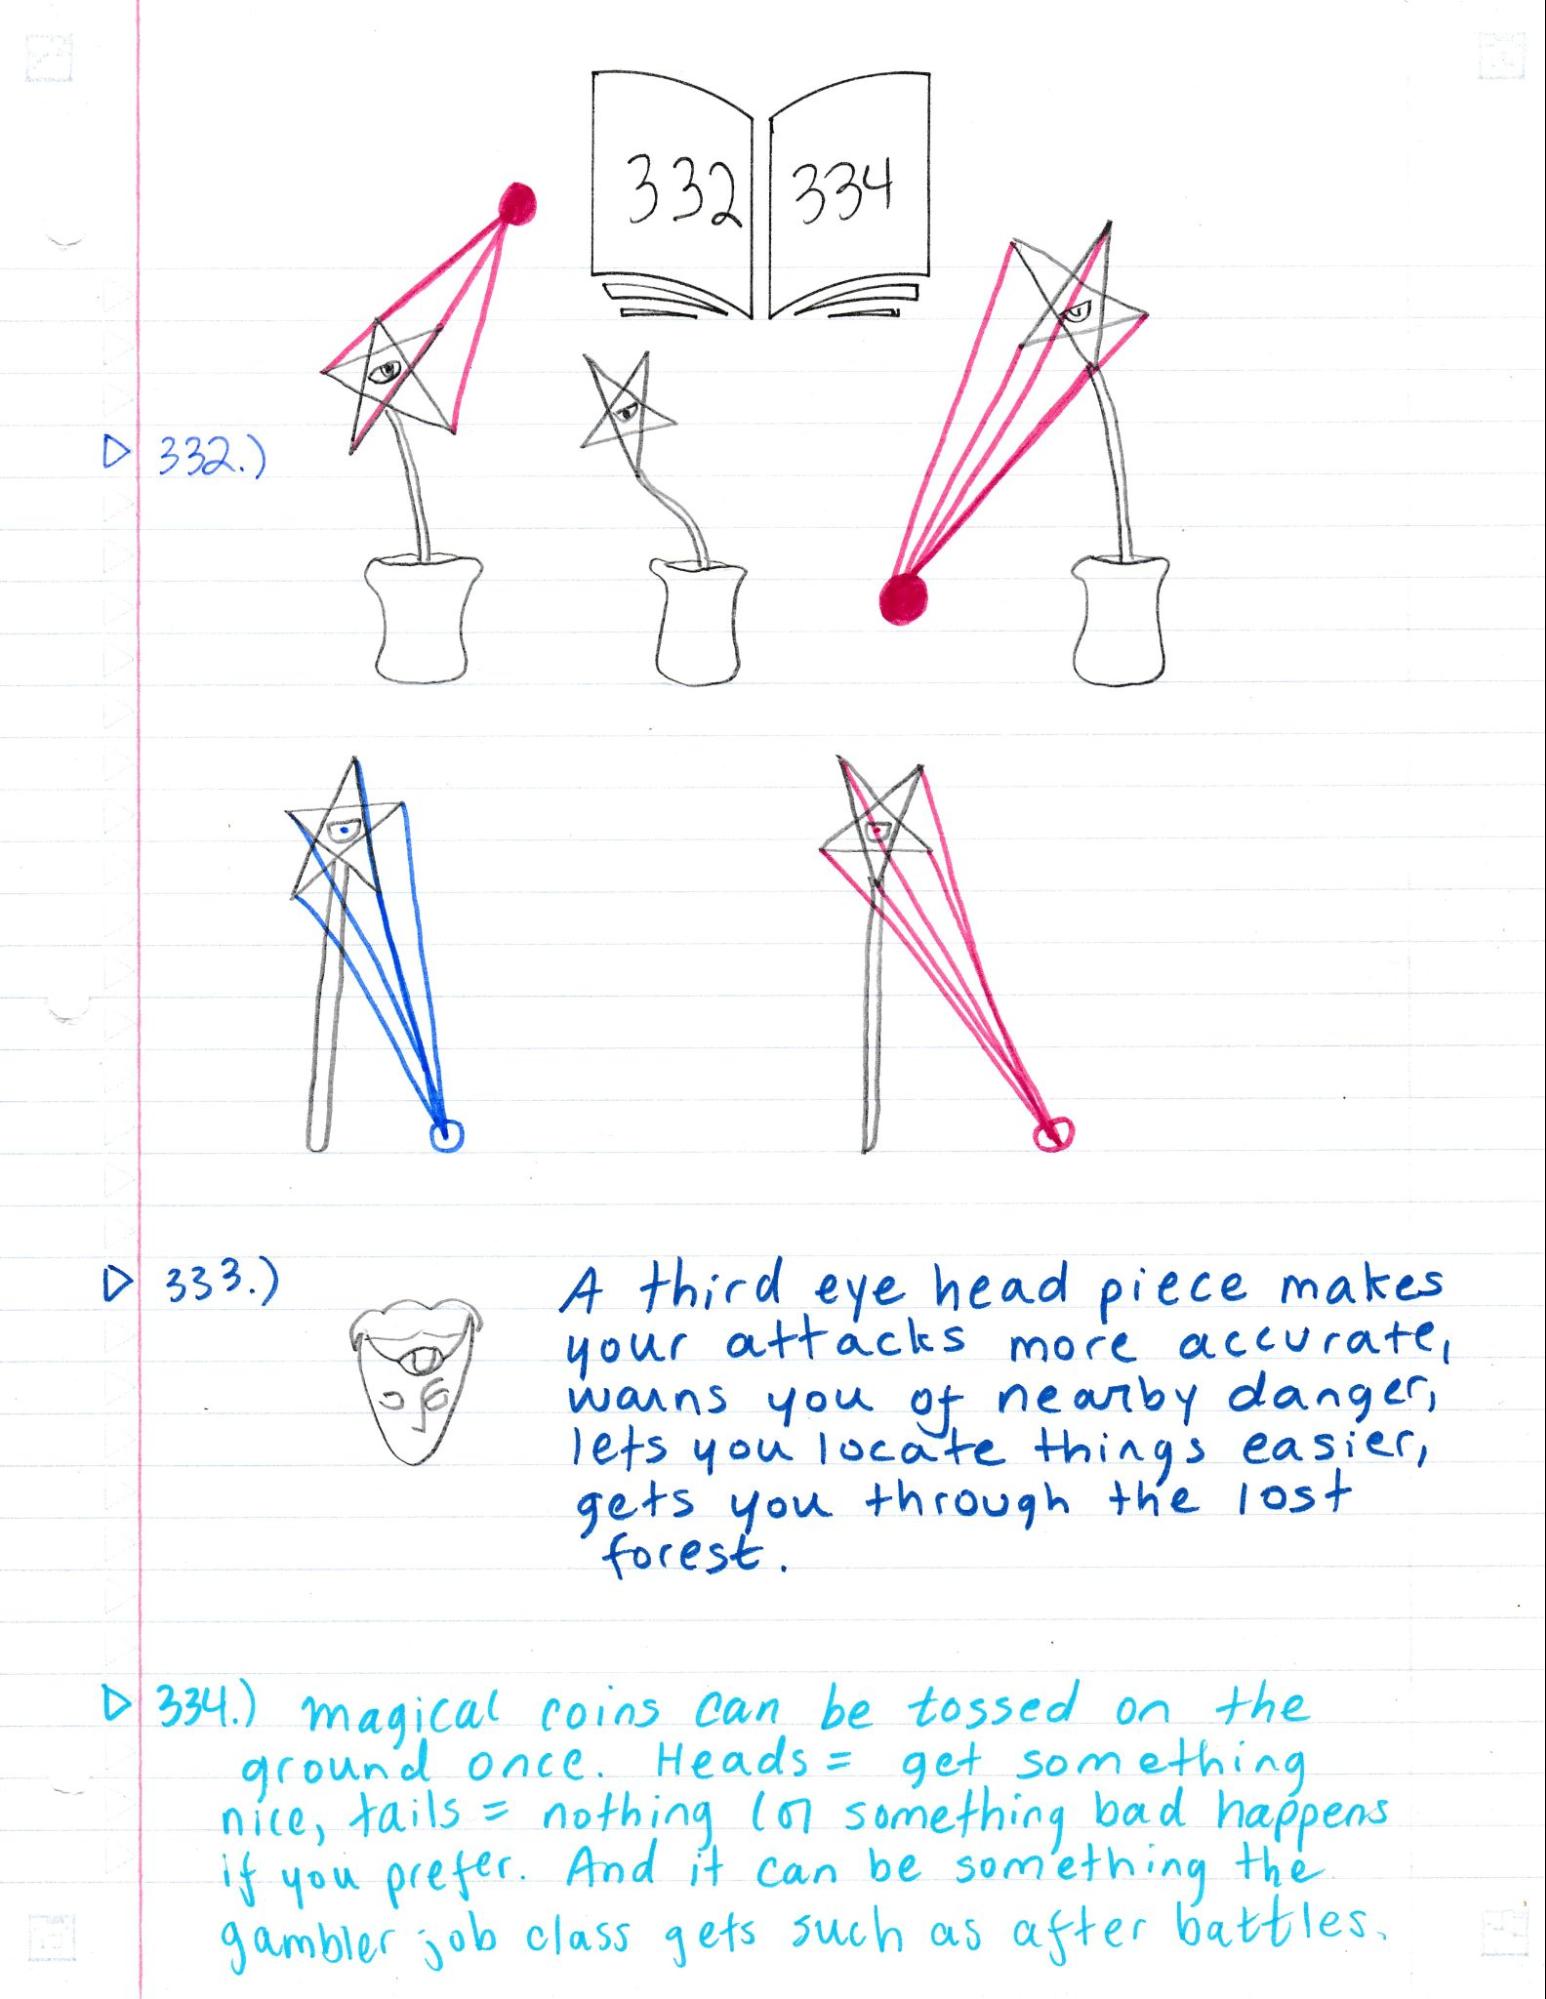 332 334
332.)
333.) A third eye head piece makes
your attacks more accurate,
warns you of nearby danger,
lets you locate things easier,
gets you through the lost
forest.
334.) magical coins can be tossed on the
ground once. Heads = get something
nice, tails = nothing (or something bad happens
if you prefer. And it can be something the
gambler job class gets such as after battles.